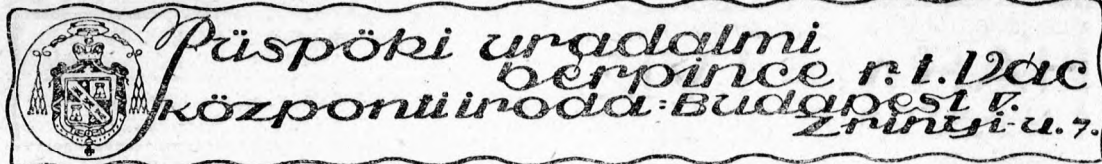 Püspöki uradalmi
borpince r. t. Vác
központi iroda: Budapest V.
Zrinyi-u. 7.